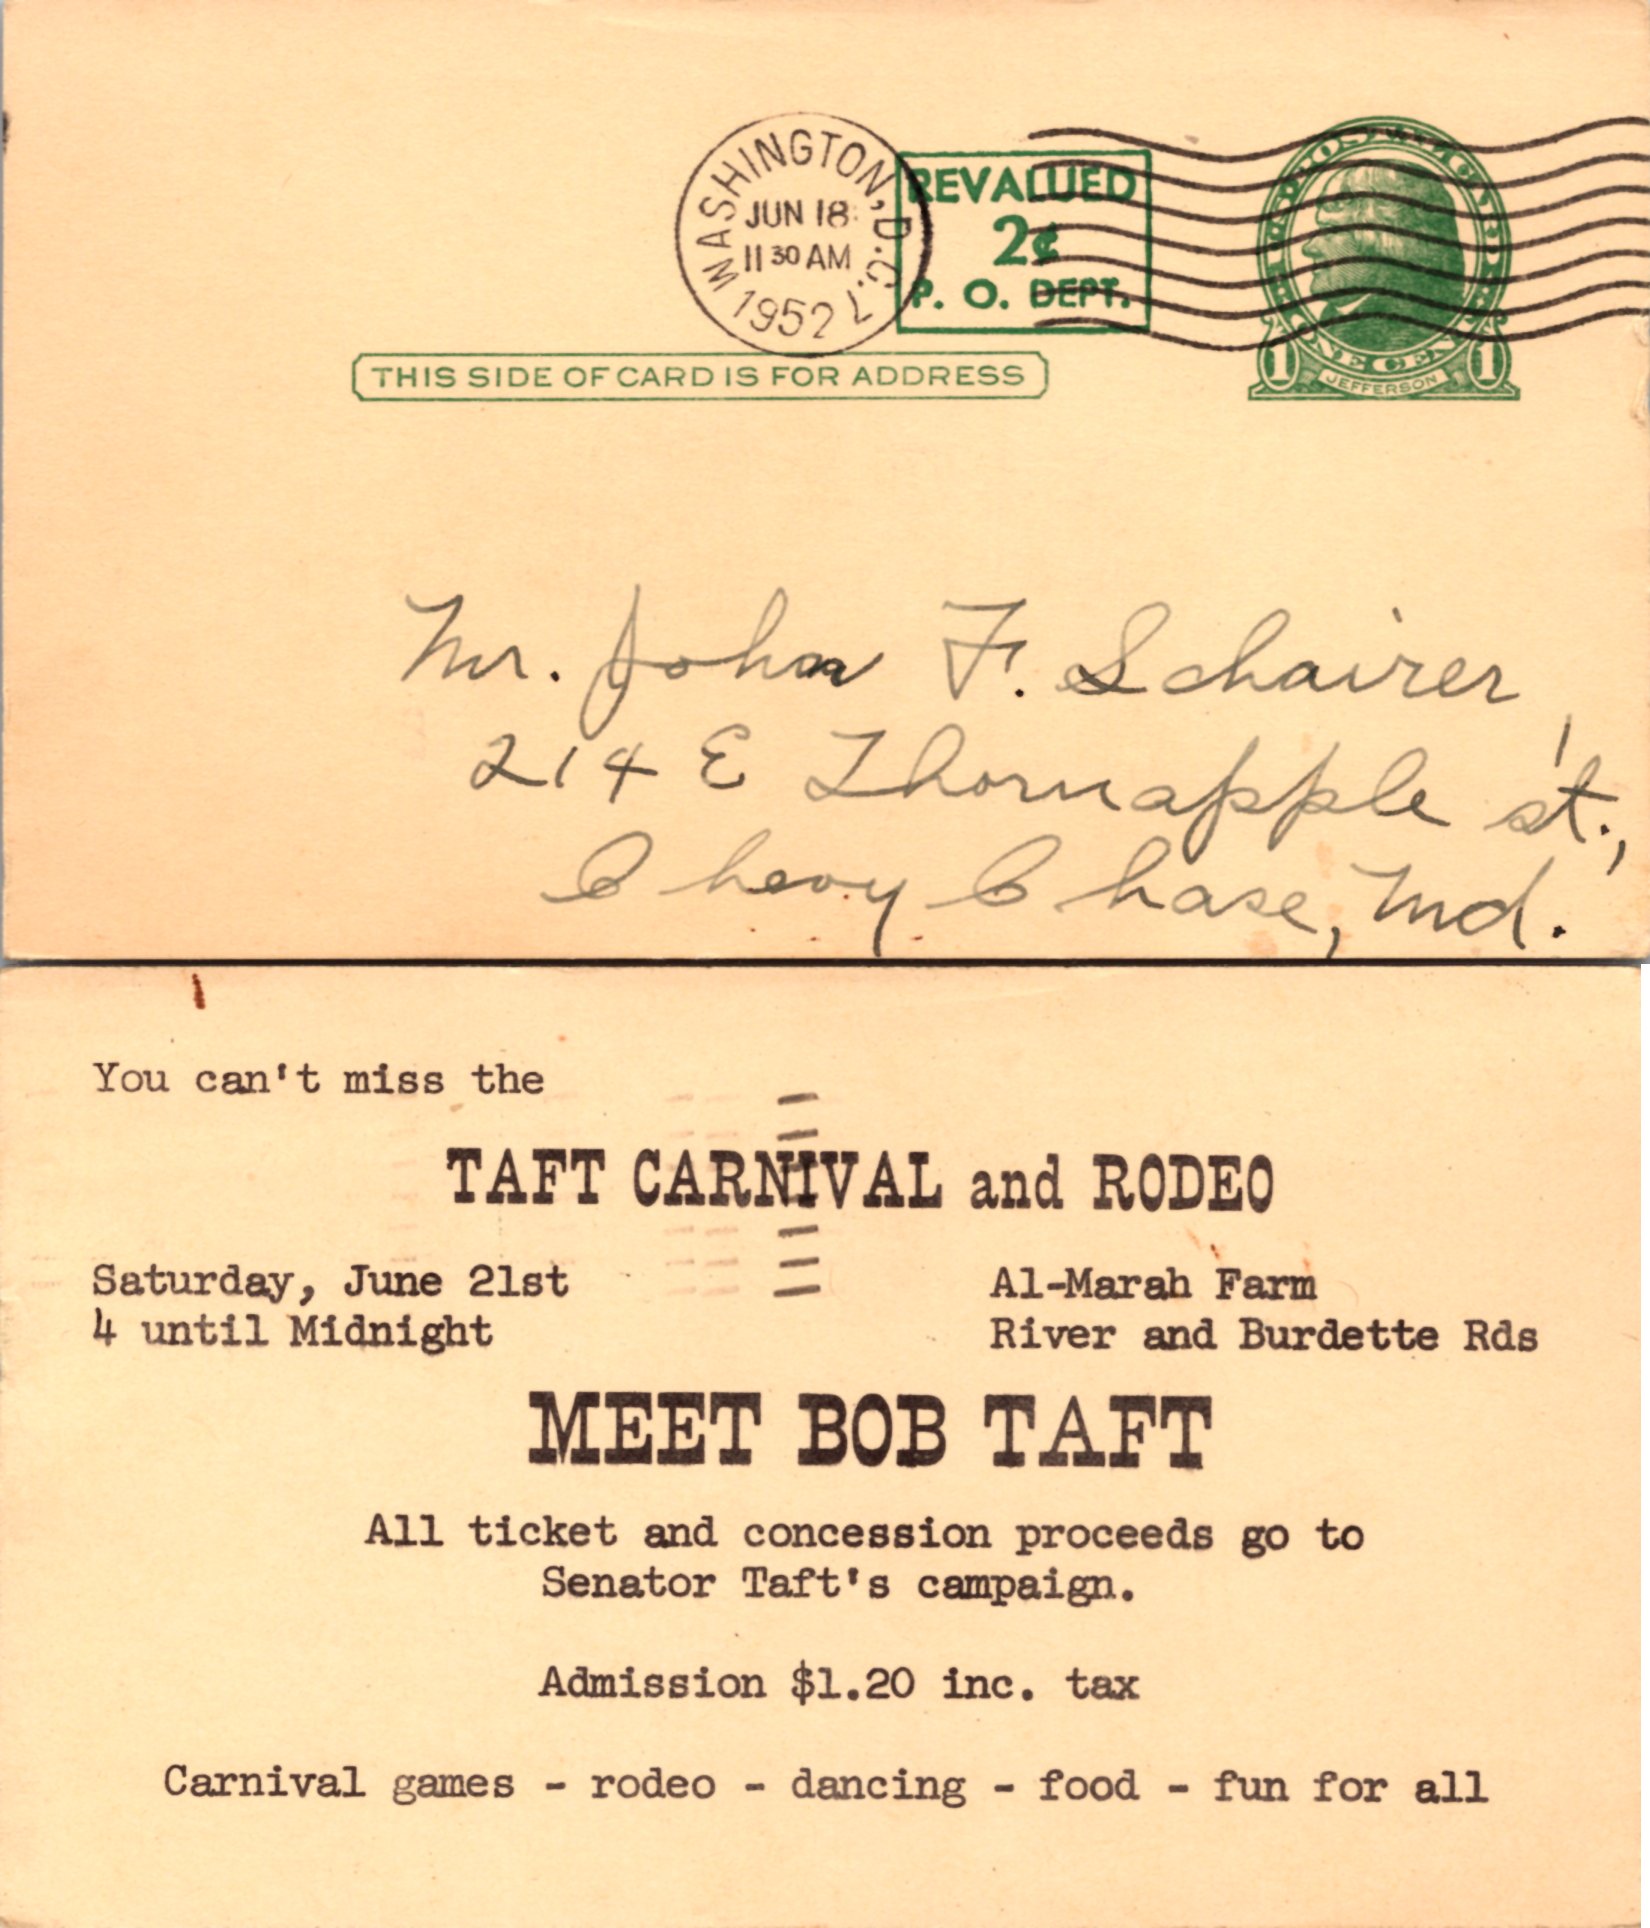 WASHINGTON, D.C.
JUN 18
11 30 AM
1952
REVALUED
2¢
P. O. DEPT.
U.S. POSTAL CARD
1 ONE CENT 1
JEFFERSON
THIS SIDE OF CARD IS FOR ADDRESS
Mr. John F. Schairer
214 E Thornapple St.,
Chevy Chase, Md.
You can't miss the
TAFT CARNIVAL and RODEO
Saturday, June 21st
4 until Midnight
Al-Marah Farm
River and Burdette Rds
MEET BOB TAFT
All ticket and concession proceeds go to
Senator Taft's campaign.
Admission $1.20 inc. tax
Carnival games - rodeo - dancing - food - fun for all